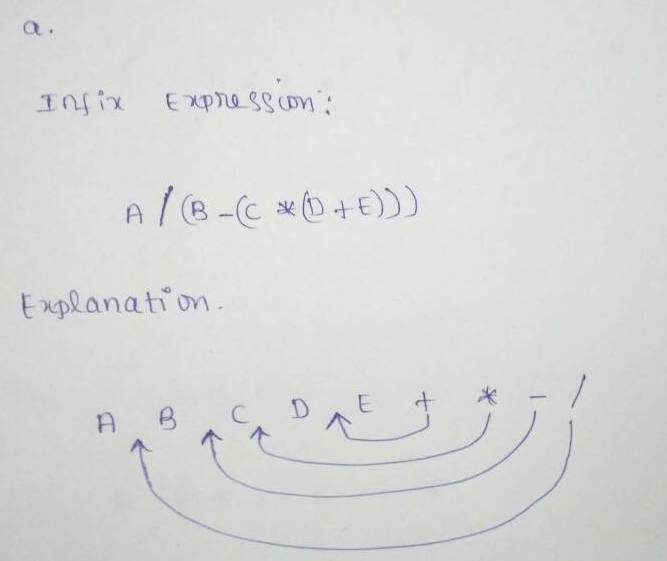 a.
Infix Expression:
A / (B - (C * (D + E)))
Explanation.
A B C D E + * - /